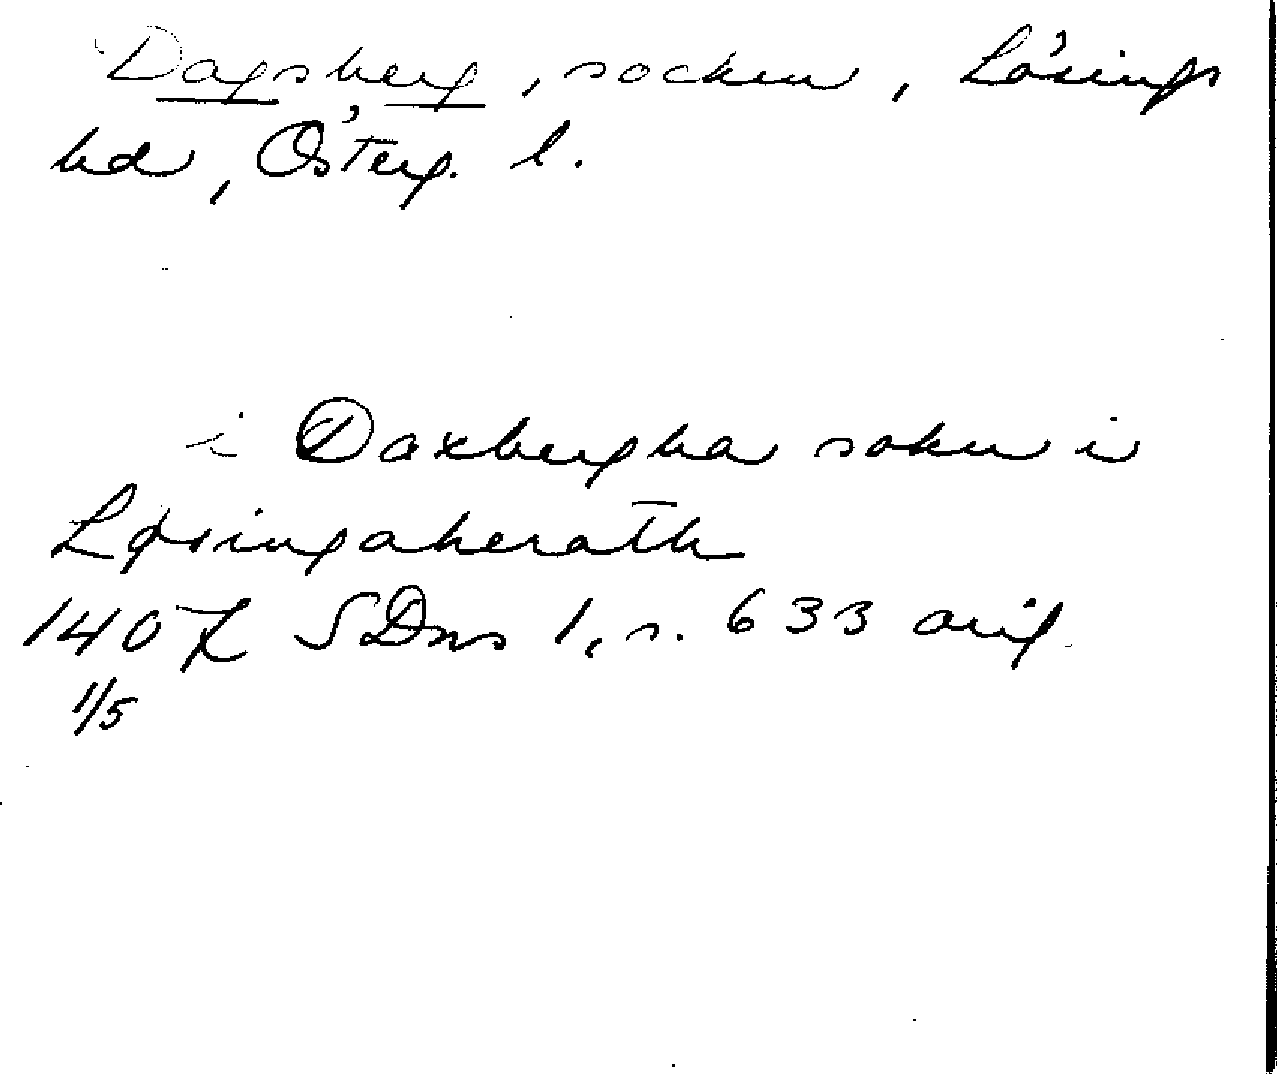 Dagsberg, socken, Lösings
hd, Österg. l.
i Daxbergha sokn i
Løsingaherath
1407 SDns 1, s. 633 orig.
1/5